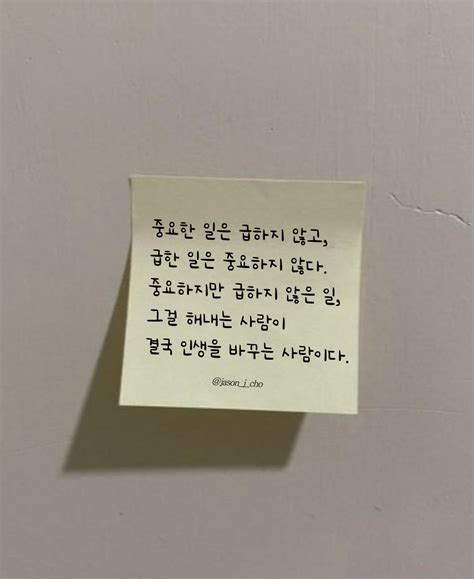 중요한 일은 급하지 않고,
급한 일은 중요하지 않다.
중요하지만 급하지 않은 일,
그걸 해내는 사람이
결국 인생을 바꾸는 사람이다.
@jason_j_cho